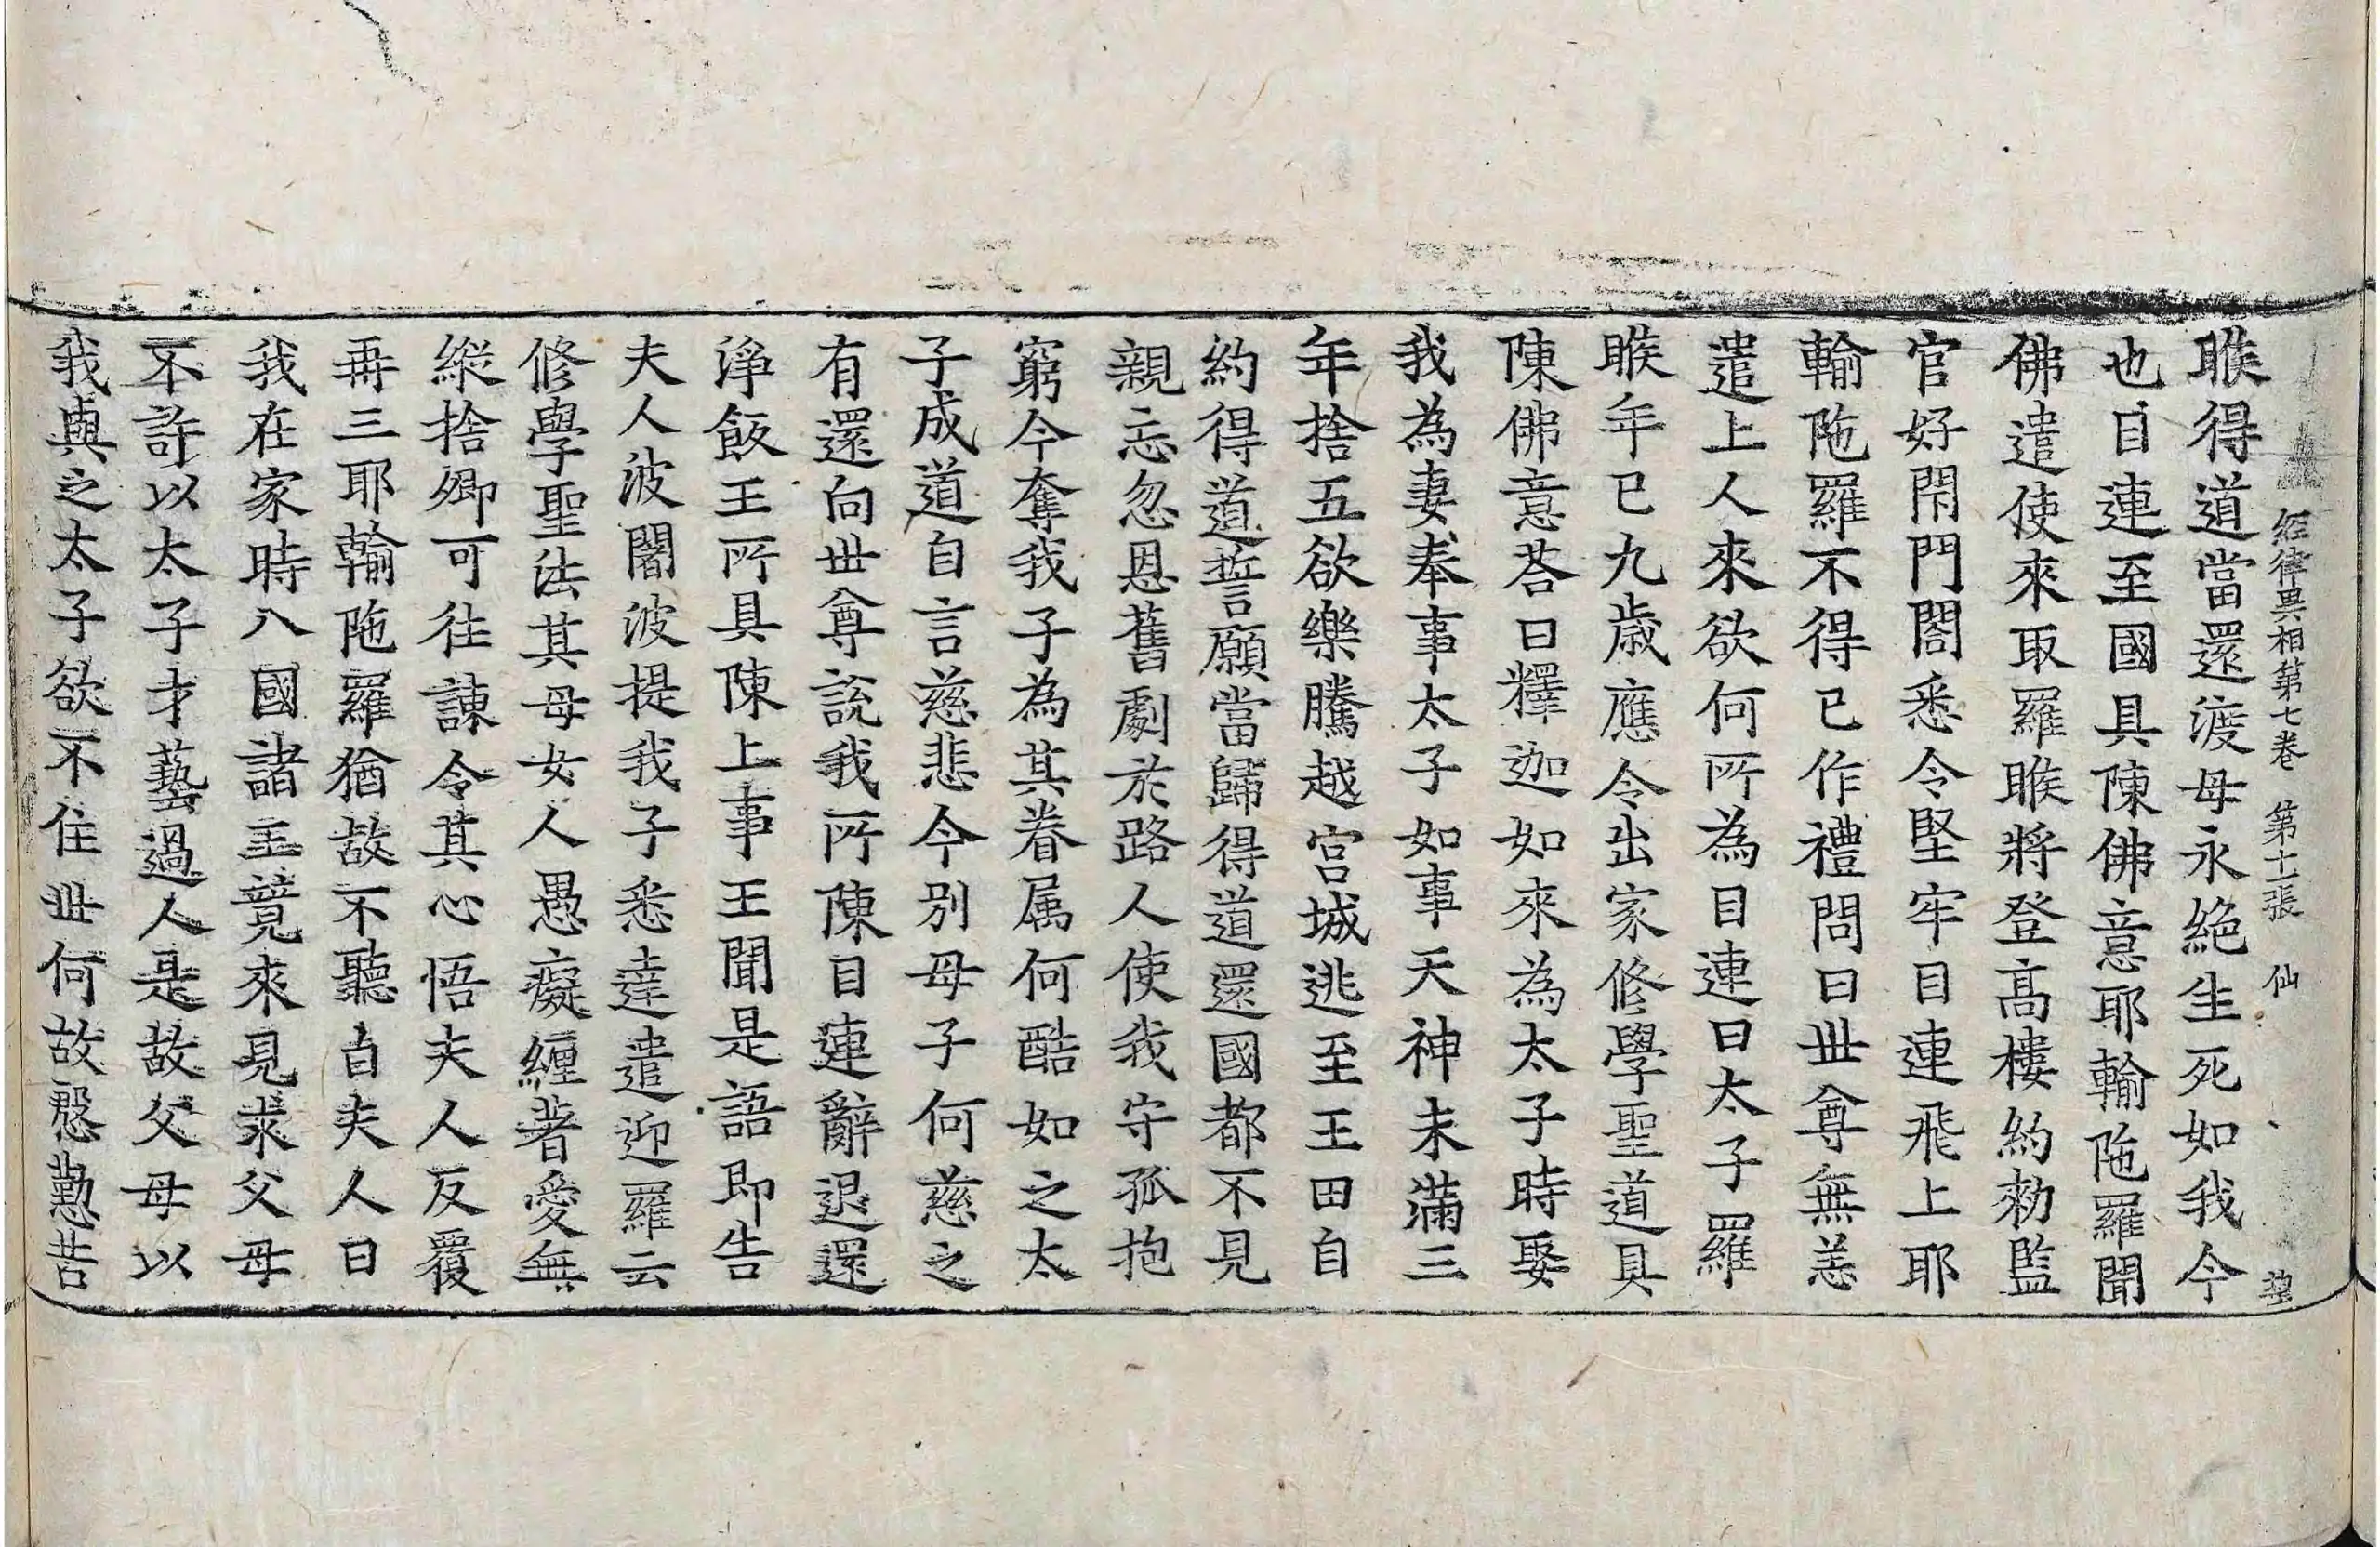 經律異相第七卷　第十二張　仙
睺得道當還渡母永絶生死如我今
也目連至國具陳佛意耶輸陁羅聞
佛遣使來取羅睺將登髙樓約勑監
官好閇門閤悉令堅牢目連飛上耶
輸陁羅不得已已作禮問曰丗尊無恙
遣上人來欲何所為目連曰太子羅
睺年已九歳應令出家修學聖道具
陳佛意荅曰釋迦如來為太子時娶
我為妻奉事太子如事天神未滿三
年捨五欲樂騰越宫城逃至王田自
約得道誓願當歸得道還國都不見
親忘忽恩舊劇於路人使我守孤抱
窮今奪我子為其眷属何酷如之太
子成道自言慈悲今別母子何慈之
有還向丗尊說我所陳目連辭退還
淨飯王所具陳上事王聞是語即告
夫人波闍波提我子悉達遣迎羅云
修學聖法其母女人愚癡纏著愛無
縱捨卿可徃諫令其心悟夫人反覆
再三耶輸陁羅猶故不聽白夫人曰
我在家時八國諸王競來見求父母
不許以太子才藝過人是故父母以
我與之太子欲不住丗何故慇懃苦